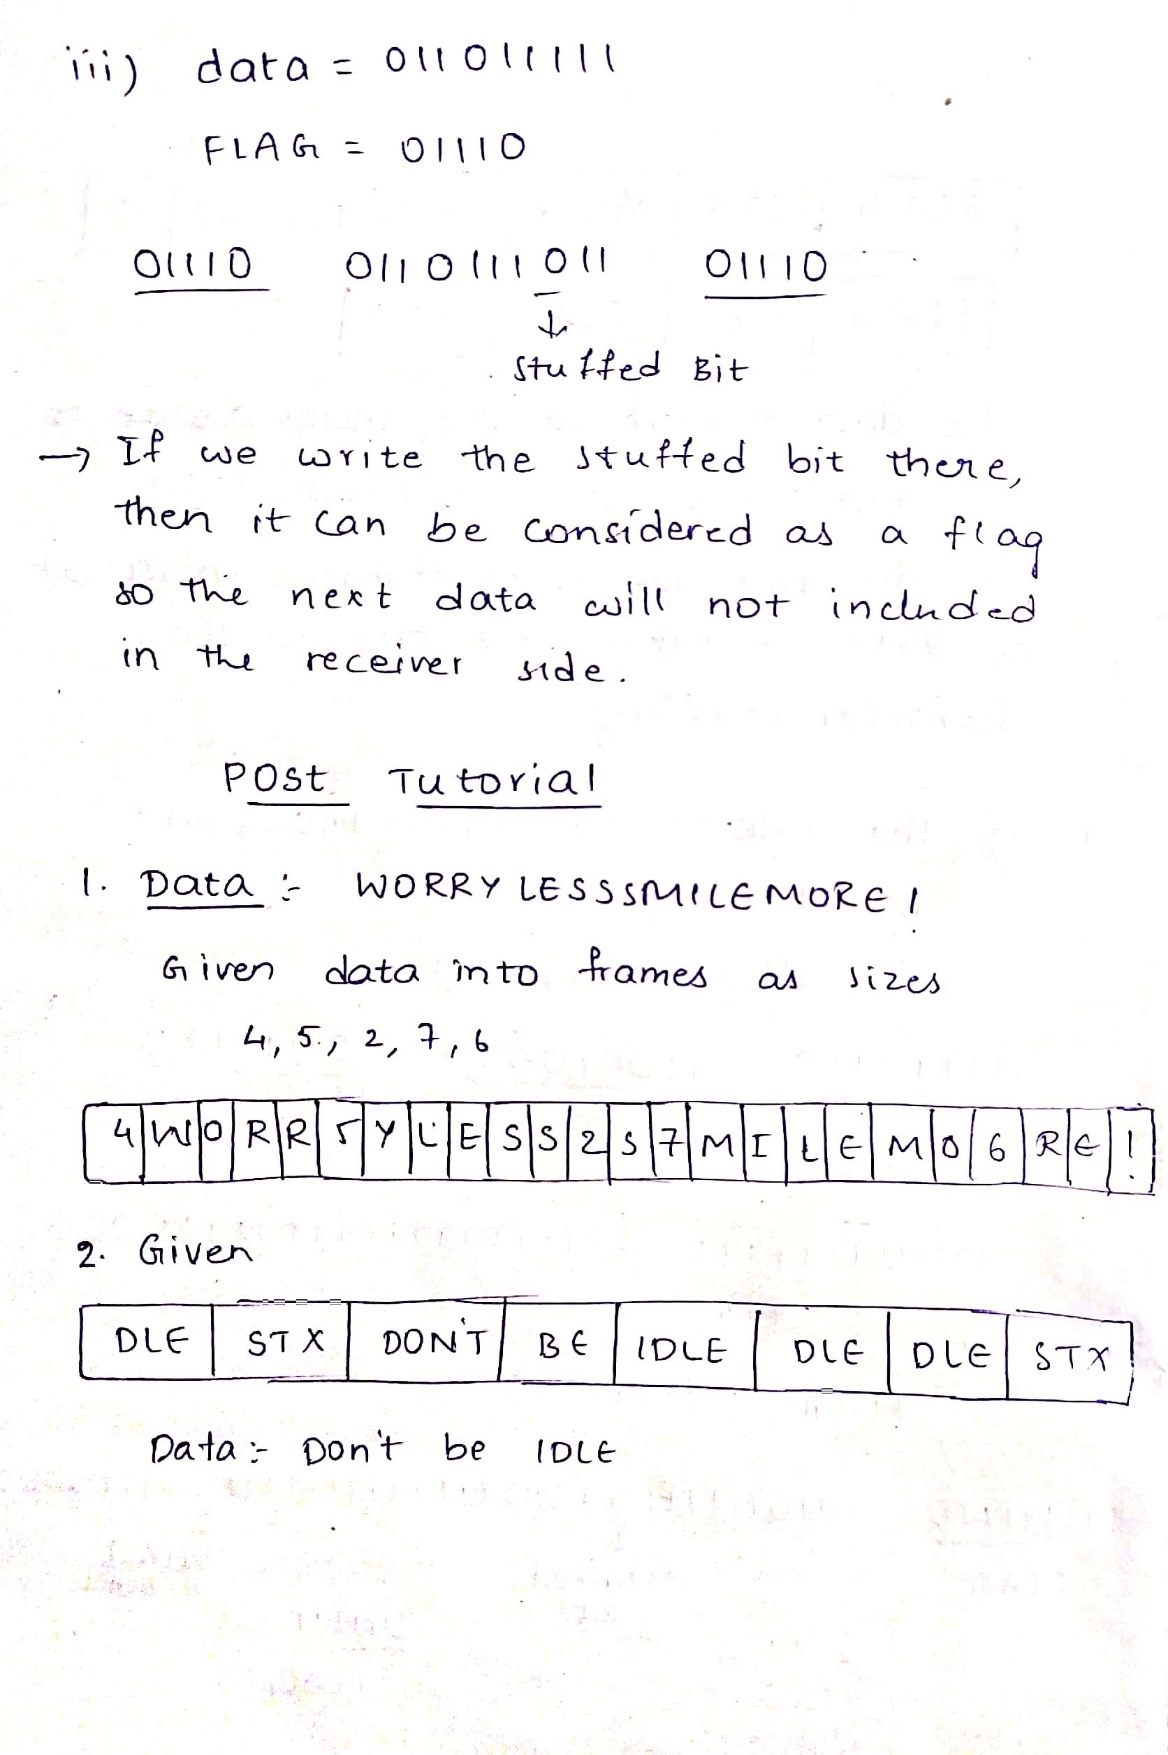 iii) data = 011011111
FLAG = 01110
01110 0110111011 01110
↓
stuffed Bit
→ If we write the stuffed bit there,
then it can be considered as a flag
so the next data will not included
in the receiver side.
Post Tutorial
1. Data :- WORRYLESSSMILEMORE!
Given data into frames as sizes
4, 5, 2, 7, 6
4 W O R R 5 Y L E S S 2 S 7 M I L E M O 6 R E !
2. Given
DLE STX DON'T BE IDLE DLE DLE STX
Data :- Don't be IDLE